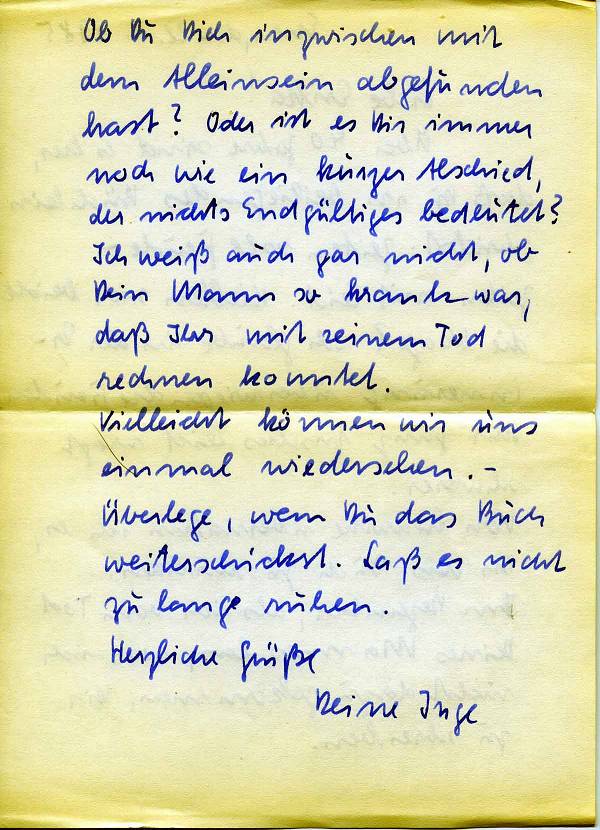 Ob Du Dich inzwischen mit
dem Alleinsein abgefunden
hast? Oder ist es Dir immer
noch wie ein kurzer Abschied,
der nichts Endgültiges bedeutet?
Ich weiß auch gar nicht, ob
Dein Mann so krank war,
daß Ihr mit seinem Tod
rechnen konntet.
Vielleicht können wir uns
einmal wiedersehen. –
Überlege, wem Du das Buch
weiterschickst. Laß es nicht
zu lange ruhen.
Herzliche Grüße
Deine Inge